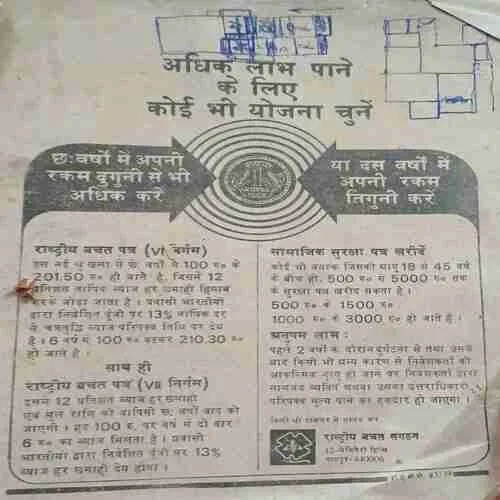 अधिक लाभ पाने
के लिए
कोई भी योजना चुनें
छ: वर्षों में अपनी
रकम दुगुनी से भी
अधिक करें
या दस वर्षों में
अपनी रकम
तिगुनी करें
राष्ट्रीय बचत पत्र (VI निर्गम)
इस नई में छ: वर्षों में 100 रु० के
201.50 रु० हो जाते है, जिसमें 12
प्रतिशत वार्षिक ब्याज हर छमाही हिसाब
करके जोड़ा जाता है। प्रवासी भारतीयों
द्वारा निवेशित पूँजी पर 13% वार्षिक दर
से चक्रवृद्धि ब्याज परिपक्व तिथि पर देय
है। 6 वर्ष में 100 रु० बढ़कर 210.30 रु०
हो जाते है।
साथ ही
राष्ट्रीय बचत पत्र (VII निर्गम)
इसमें 12 प्रतिशत ब्याज हर छमाही
एवं मूल राशि की वापिसी छ: वर्षों बाद की
जाएगी। हर 100 रु. पर वर्ष में दो बार
6 रु० का ब्याज मिलता है। प्रवासी
भारतीयों द्वारा निवेशित पूँजी पर 13%
ब्याज हर छमाही देय होगा।
सामाजिक सुरक्षा पत्र खरीदें
कोई भी वयस्क जिसकी आयु 18 से 45 वर्ष
के बीच हो, 500 रु० से 5000 रु० तक
के सुरक्षा पत्र खरीद सकता है।
500 रु० के 1500 रु०
1000 रु० के 3000 रु० हो जाते हैं।
अनुपम लाभ :
पहले 2 वर्षों के दौरान दुर्घटना से तथा उसके
बाद किसी भी अन्य कारण से निवेशकर्ता की
आकस्मिक मृत्यु हो जाने पर निवेशकर्ता द्वारा
नामजद व्यक्ति अथवा उसका उत्तराधिकारी
परिपक्व मूल्य पाने का हकदार हो जाएगा।
राष्ट्रीय बचत संगठन
12-सेमिनरी हिल्स
नागपुर-440006